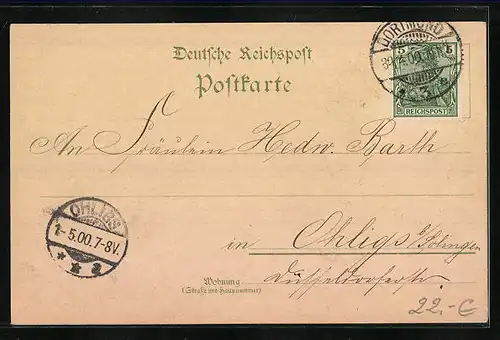 Deutsche Reichspost
Postkarte
DORTMUND
5 5
REICHSPOST
An Fräulein Hedw. Barth
OHLIGS
1-5.00.7-8V.
* * a
in Ohligs b/Solingen
Wohnung
(Straße und Hausnummer)
Düsseldorferstr.
22.-€